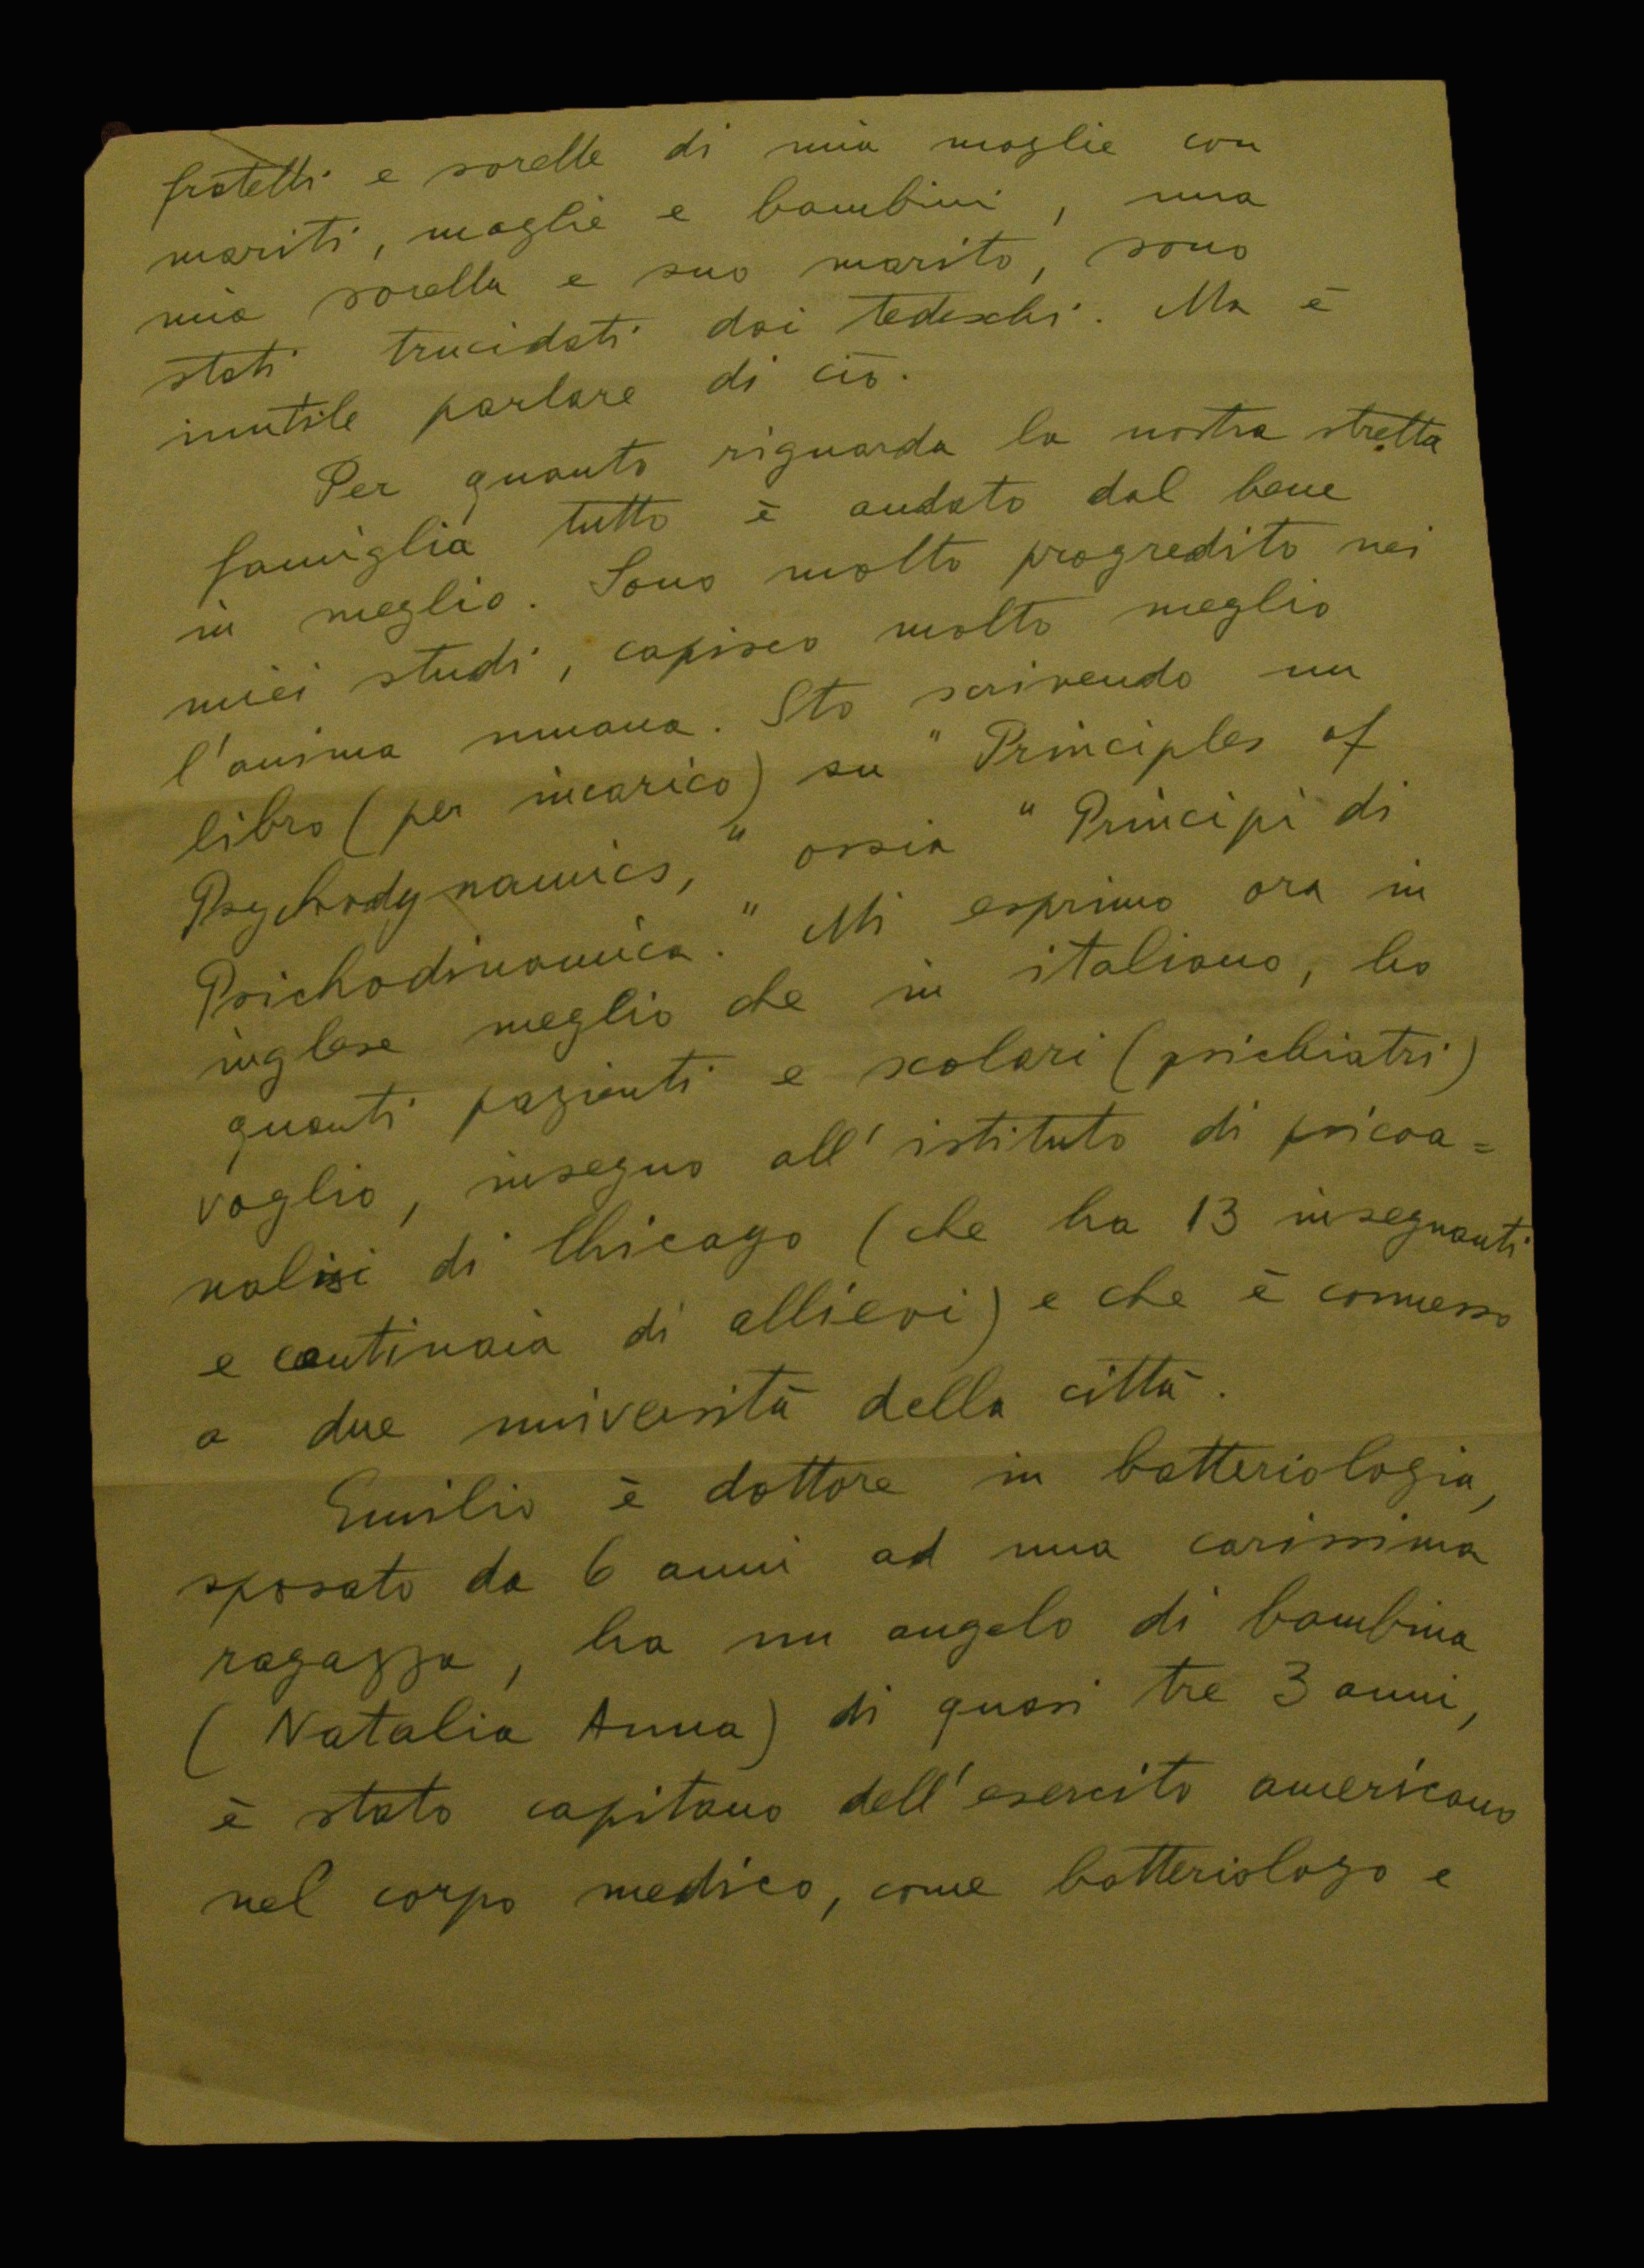 fratelli e sorelle di mia moglie con
mariti, moglie e bambini, una
mia sorella e suo marito, sono
stati trucidati dai tedeschi. Ma è
inutile parlare di ciò.
Per quanto riguarda la nostra stretta
famiglia tutto è andato dal bene
in meglio. Sono molto progredito nei
miei studi, capisco molto meglio
l'anima umana. Sto scrivendo un
libro (per incarico) su "Principles of
Psychodynamics," ossia "Principi di
Psichodinamica." Mi esprimo ora in
inglese meglio che in italiano, ho
quanti pazienti e scolari (psichiatri)
voglio, insegno all'istituto di psicoa=
nalisi di Chicago (che ha 13 insegnanti
e centinaia di allievi) e che è connesso
a due università della città.
Emilio è dottore in batteriologia,
sposato da 6 anni ad una carissima
ragazza, ha un angelo di bambina
(Natalia Anna) di quasi tre 3 anni,
è stato capitano dell'esercito americano
nel corpo medico, come batteriologo e